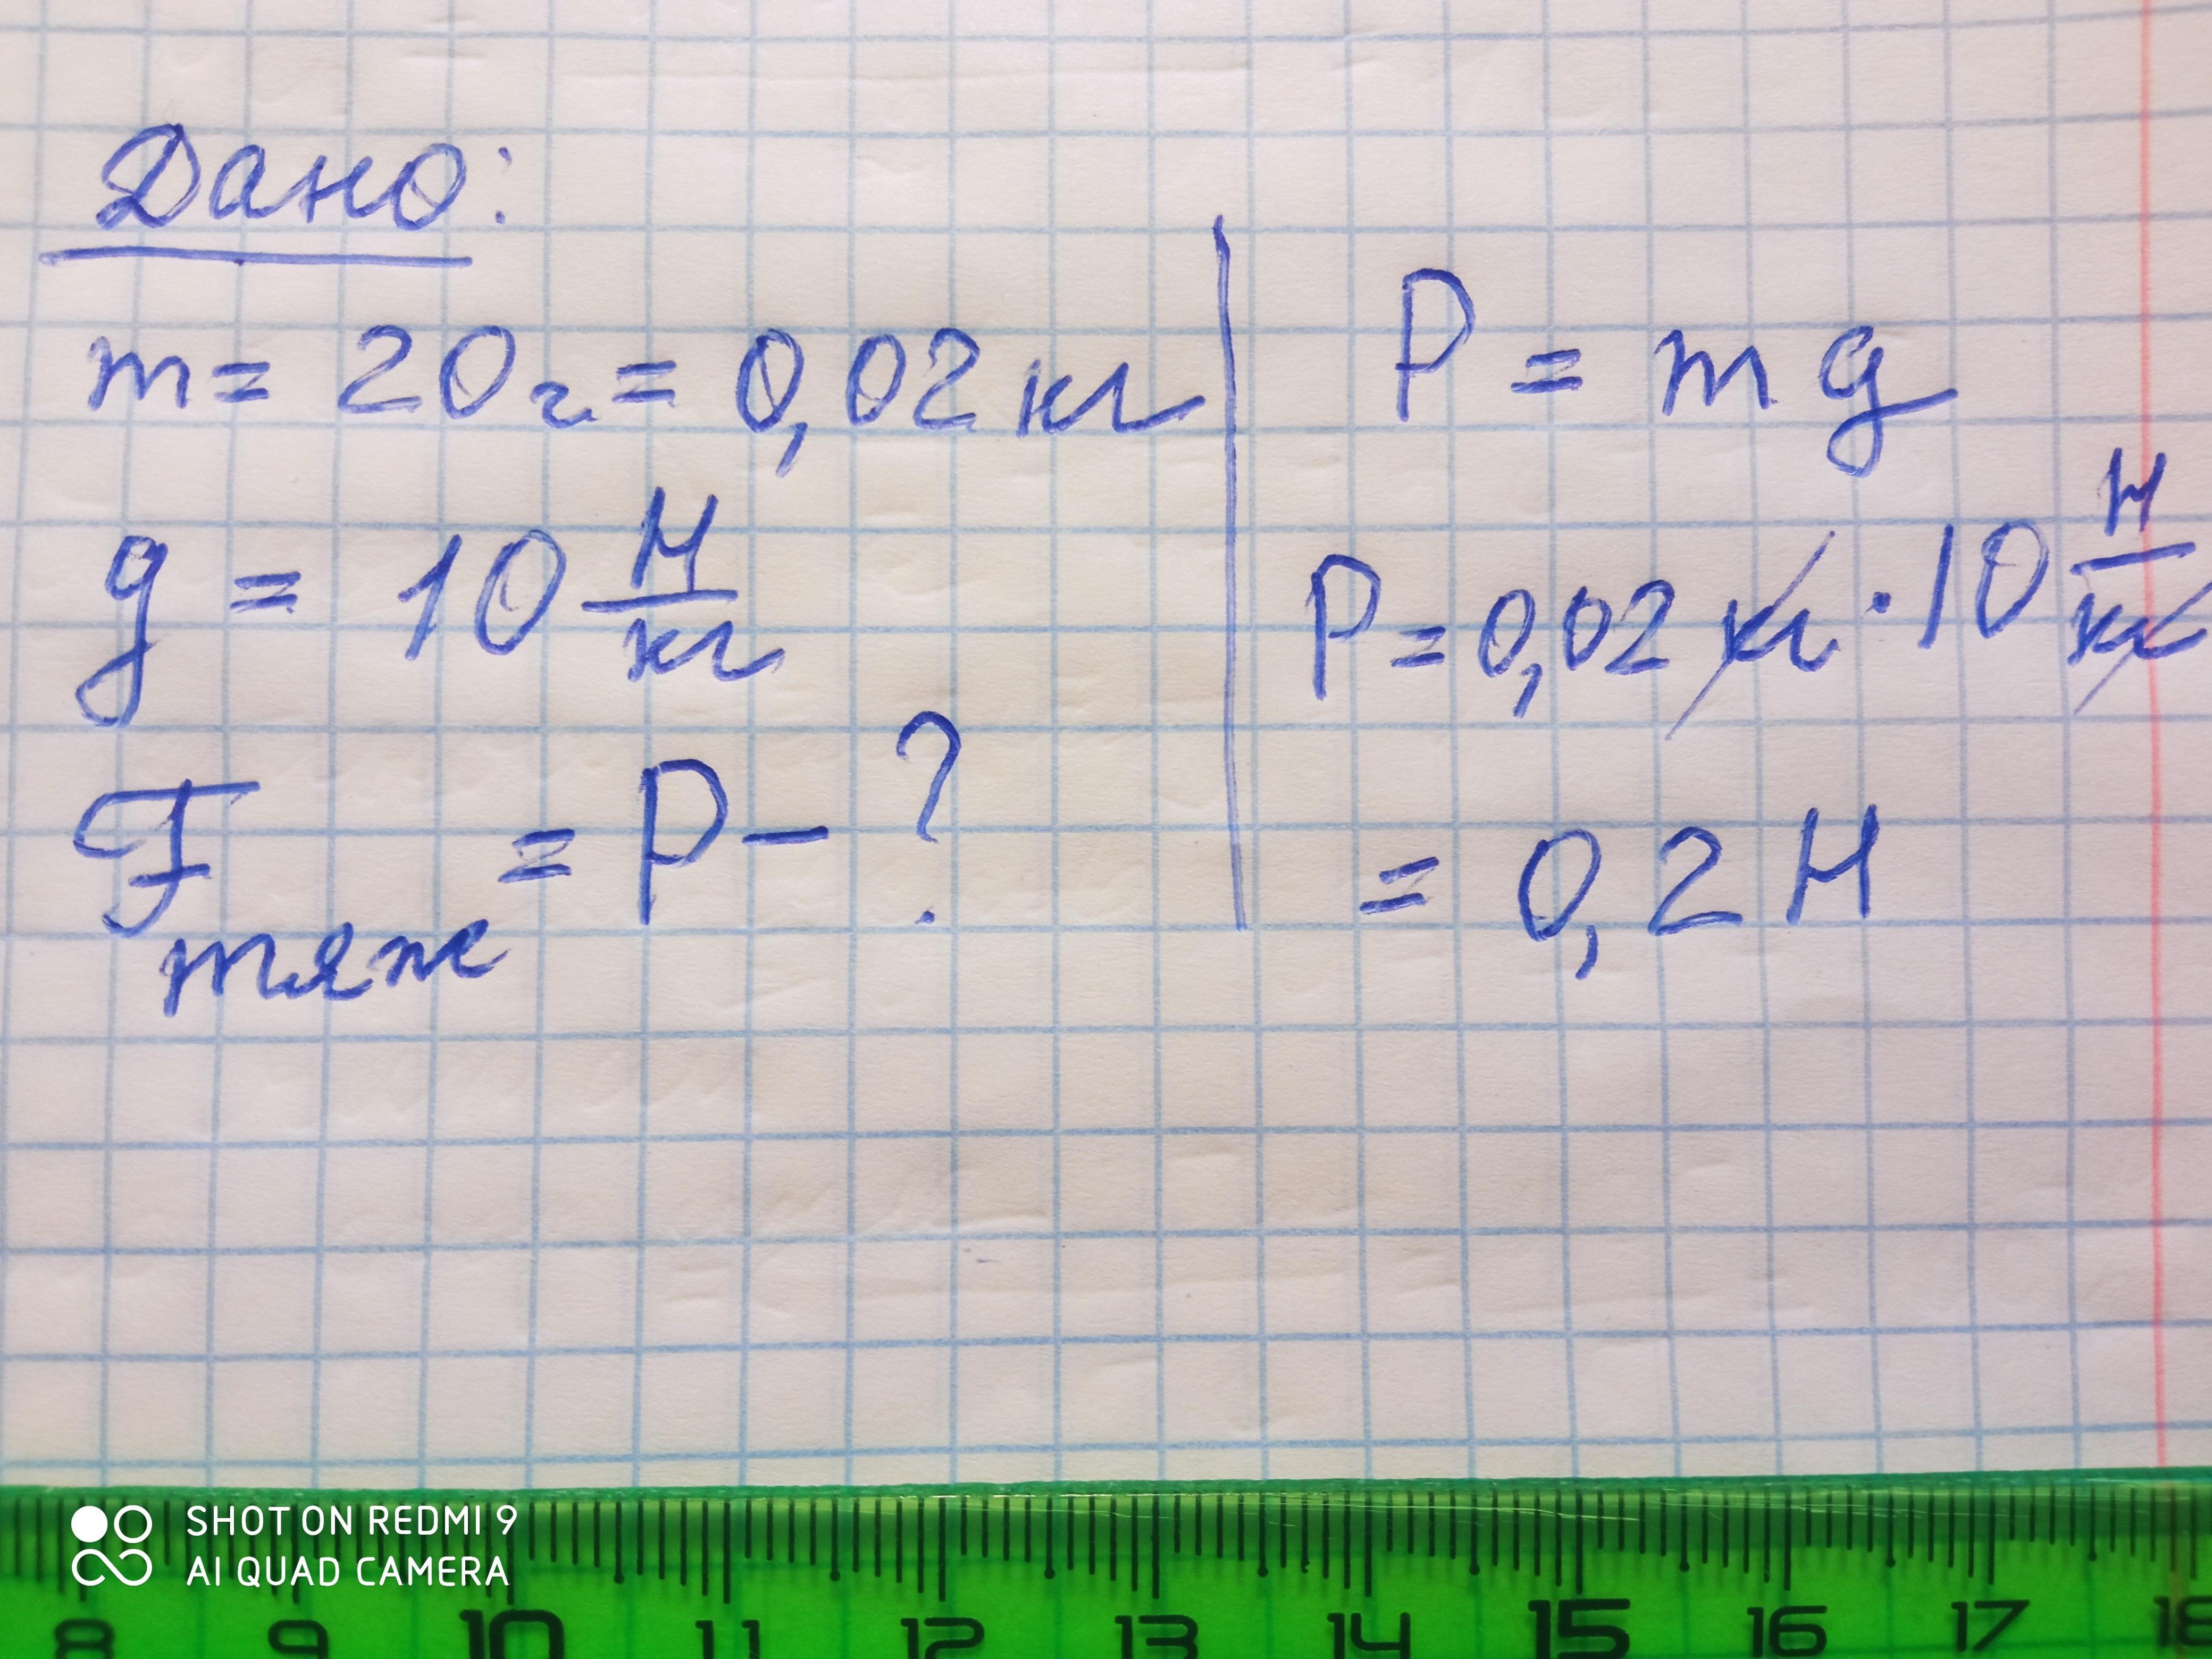 Дано:
m = 20 г = 0,02 кг
g = 10 Н/кг
Fтяж = P - ?
P = mg
P = 0,02 кг · 10 Н/кг
= 0,2 Н
SHOT ON REDMI 9
AI QUAD CAMERA
8 9 10 11 12 13 14 15 16 17 18